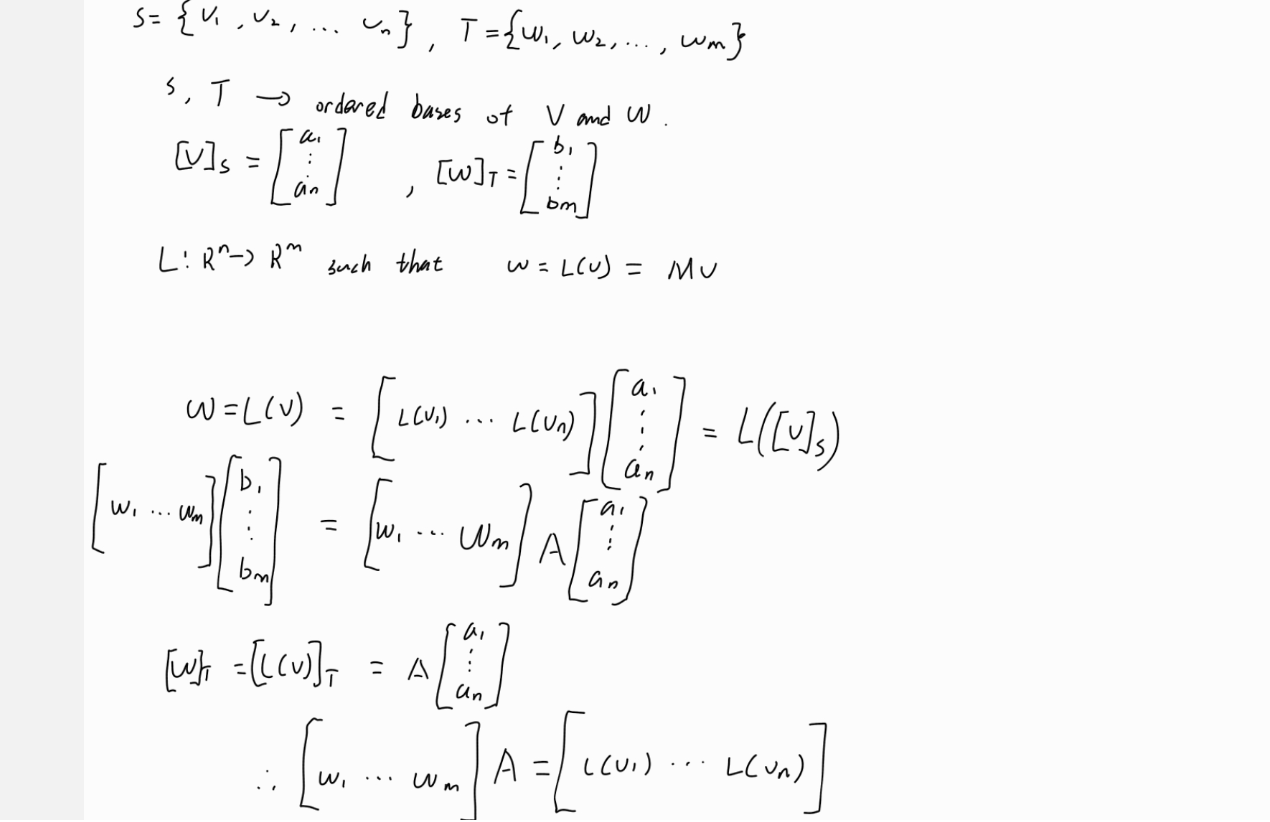 S = {v₁, v₂, ... vₙ}, T = {w₁, w₂, ..., wₘ}
S, T → ordered bases of V and W.
[v]_S = [a₁ ⋮ aₙ], [w]_T = [b₁ ⋮ bₘ]
L: Rⁿ → Rᵐ such that w = L(v) = Mv
w = L(v) = [L(v₁) ... L(vₙ)] [a₁ ⋮ aₙ] = L([v]_S)
[w₁ ... wₘ] [b₁ ⋮ bₘ] = [w₁ ... wₘ] A [a₁ ⋮ aₙ]
[w]_T = [L(v)]_T = A [a₁ ⋮ aₙ]
∴ [w₁ ... wₘ] A = [L(v₁) ... L(vₙ)]